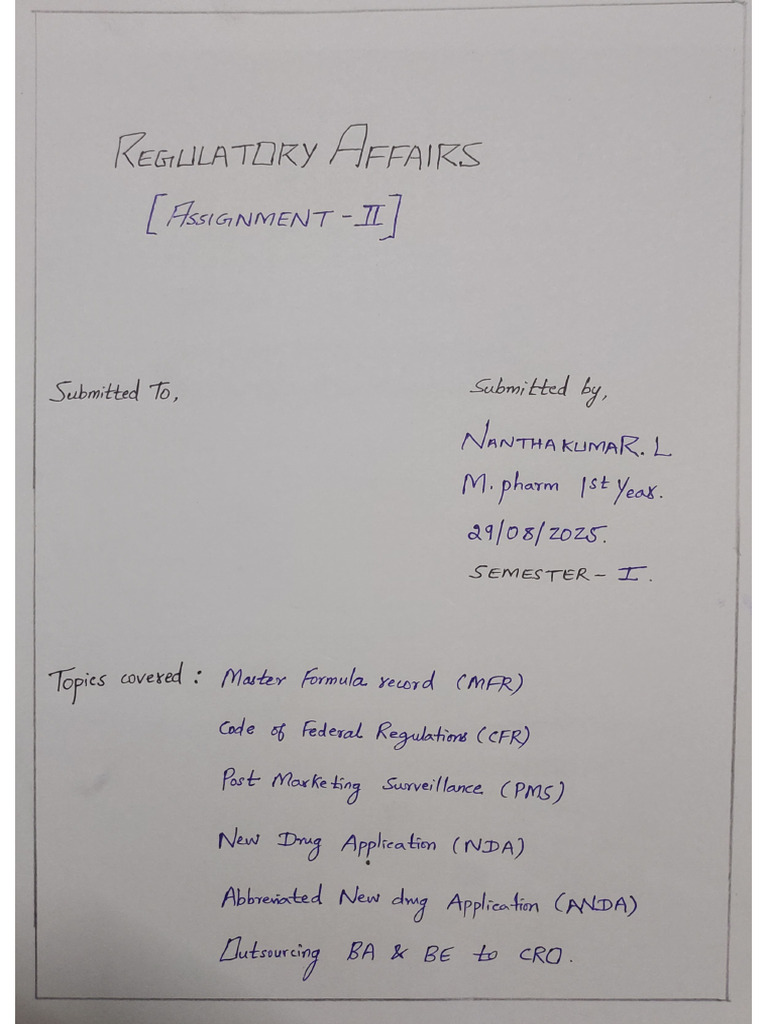 REGULATORY AFFAIRS
[ASSIGNMENT - II]
Submitted To,
Submitted by,
NANTHAKUMAR. L
M. pharm 1st Year.
29/08/2025.
SEMESTER - I.
Topics covered : Master Formula record (MFR)
Code of Federal Regulations (CFR)
Post Marketing Surveillance (PMS)
New Drug Application (NDA)
Abbreviated New drug Application (ANDA)
Outsourcing BA & BE to CRO.